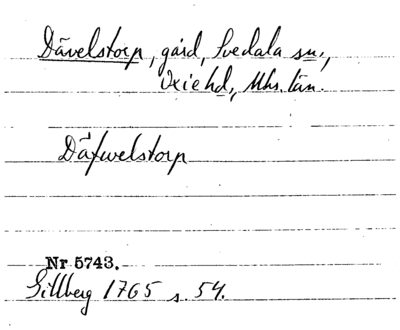 Dävelstorp, gård, Svedala sn.,
Oxie hd., Mhs. län.
Däfwelstorp
Nr 5743.
Gillberg 1765 s. 54.